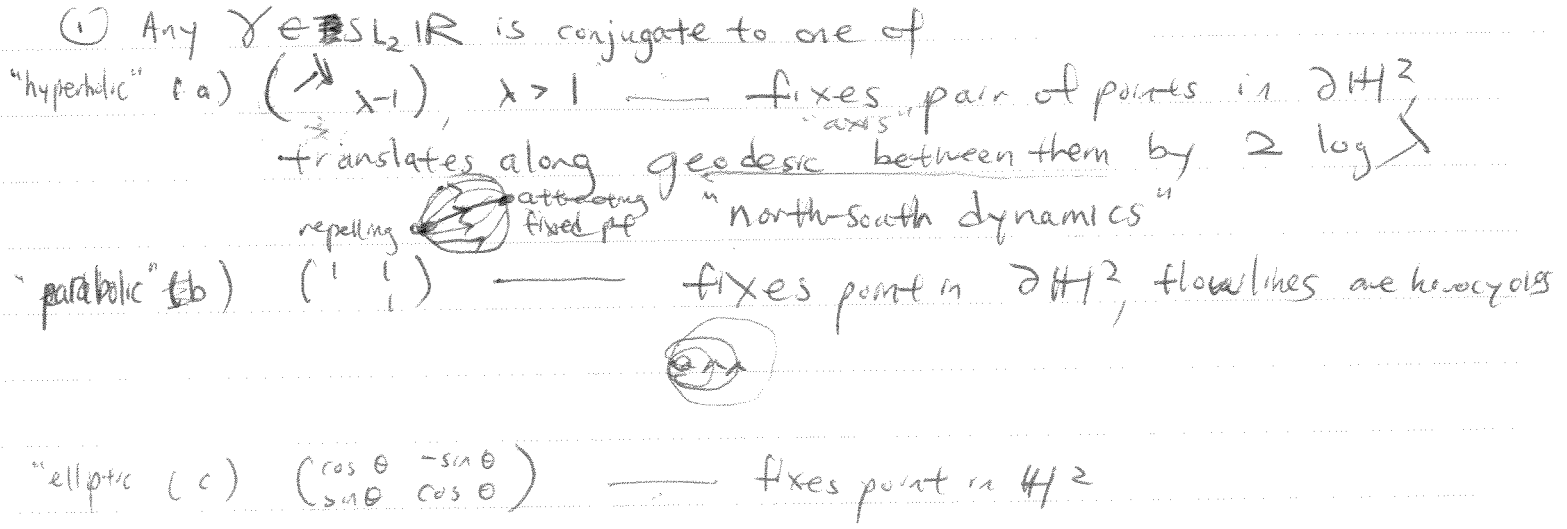 ① Any γ ∈ SL₂ℝ is conjugate to one of
"hyperbolic" (a) (λ λ-1), λ > 1 — fixes pair of points in ∂ℍ²,
"axis"
translates along geodesic between them by 2 log λ
repelling attracting fixed pt "north-south dynamics"
"parabolic" (b) (1 1 1) — fixes point in ∂ℍ², flowlines are horocycles
"elliptic (c) (cos θ -sin θ
sin θ cos θ) — fixes point in ℍ²